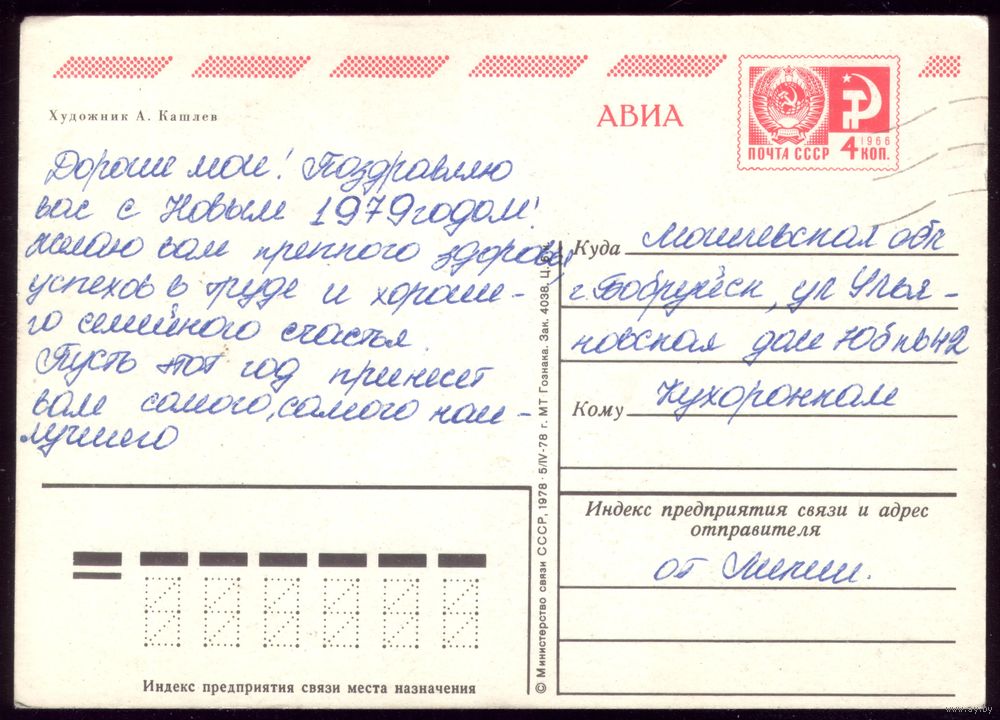 АВИА
ПОЧТА СССР
1966
4 КОП.
Художник А. Кашлев
Дорогие мои! Поздравляю
вас с Новым 1979 годом!
Желаю вам крепкого здоровья
успехов в труде и хороше-
го семейного счастья.
Пусть этот год принесёт
вам самого, самого наи-
лучшего
Куда Могилевская обл
г. Бобруйск, ул Улья-
новская дом 105 кв 42
Кому Кухоронкам
Индекс предприятия связи и адрес
отправителя
от Лилии.
© Министерство связи СССР, 1978 · 5/IV-78 г. МТ Гознака. Зак. 4038. Ц.
Индекс предприятия связи места назначения
www.ay.by